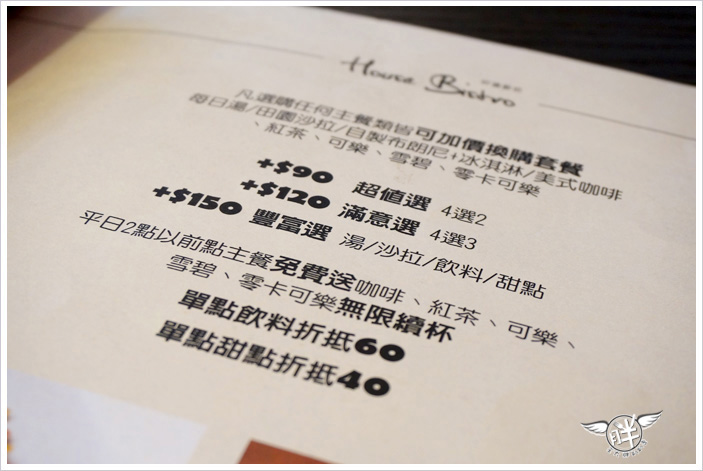 House Bistro
凡選購任何主餐類皆可加價換購套餐
每日湯/田園沙拉/自製布朗尼+冰淇淋/美式咖啡
、紅茶、可樂、雪碧、零卡可樂
+$90 超值選 4選2
+$120 滿意選 4選3
+$150 豐富選 湯/沙拉/飲料/甜點
平日2點以前點主餐免費送咖啡、紅茶、可樂、
雪碧、零卡可樂無限續杯
單點飲料折抵60
單點甜點折抵40
胖